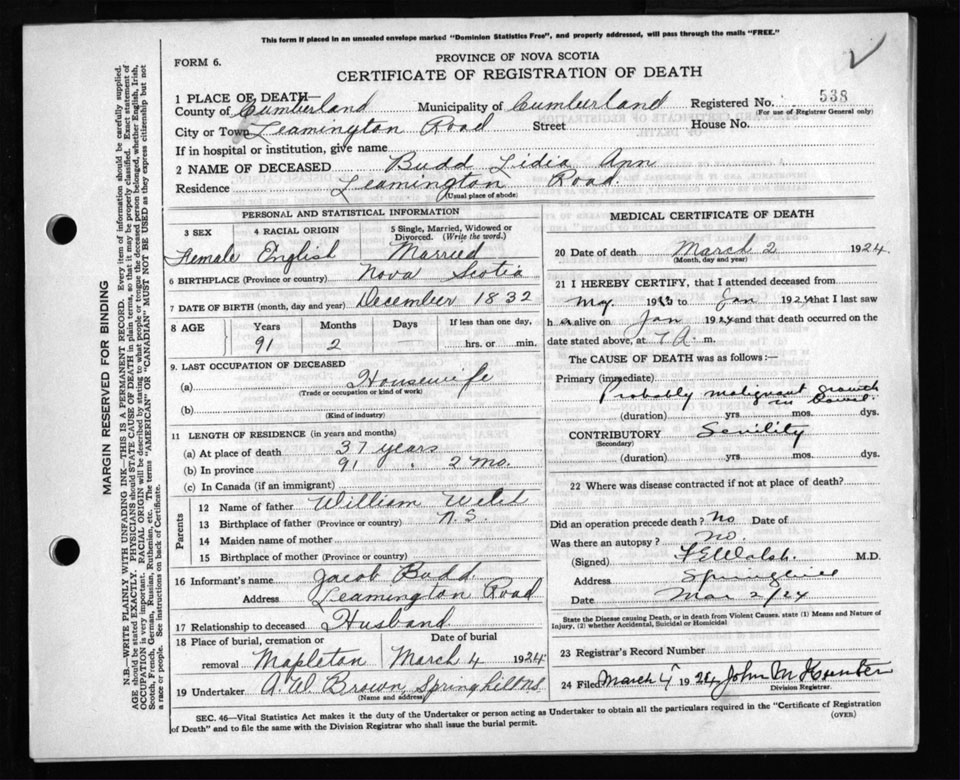 This form if placed in an unsealed envelope marked "Dominion Statistics Free", and properly addressed, will pass through the mails "FREE."
2
FORM 6.
PROVINCE OF NOVA SCOTIA
CERTIFICATE OF REGISTRATION OF DEATH
1 PLACE OF DEATH—
County of Cumberland Municipality of Cumberland Registered No. 538
(For use of Registrar General only)
City or Town Leamington Road Street House No.
If in hospital or institution, give name
2 NAME OF DECEASED Budd Lidia Ann
Residence Leamington Road.
(Usual place of abode)
PERSONAL AND STATISTICAL INFORMATION
3 SEX 4 RACIAL ORIGIN 5 Single, Married, Widowed or Divorced. (Write the word.)
Female English Married
6 BIRTHPLACE (Province or country) Nova Scotia
7 DATE OF BIRTH (month, day and year) December 1832
8 AGE Years Months Days If less than one day,
91 2 hrs. or min.
9. LAST OCCUPATION OF DECEASED
(a) Housewife
(Trade or occupation or kind of work)
(b)
(Kind of industry)
11 LENGTH OF RESIDENCE (in years and months)
(a) At place of death 37 years
(b) In province 91 " 2 mo.
(c) In Canada (if an immigrant)
Parents
12 Name of father William
13 Birthplace of father (Province or country) N.S.
14 Maiden name of mother
15 Birthplace of mother (Province or Country)
16 Informant's name Jacob Budd
Address Leamington Road
17 Relationship to deceased Husband
18 Place of burial, cremation or removal Mapleton Date of burial March 4 1924
19 Undertaker A.W. Brown, Springhill N.S.
(Name and address)
MEDICAL CERTIFICATE OF DEATH
20 Date of death March 2 1924.
(Month, day and year)
21 I HEREBY CERTIFY, that I attended deceased from
19 to Jan 1924 that I last saw
h er alive on Jan 1924 and that death occurred on the
date stated above, at 7 A. m.
The CAUSE OF DEATH was as follows:—
Primary (immediate)
Probably malignant growth
in Bowel.
(duration) yrs. mos. dys.
CONTRIBUTORY Senility
(Secondary)
(duration) yrs. mos. dys.
22 Where was disease contracted if not at place of death?
Did an operation precede death? No Date of
Was there an autopsy? No.
(Signed) F E Walsh. M.D.
Address Springhill
Date Mar 2/24
State the Disease causing Death, or in death from Violent Causes, state (1) Means and Nature of
Injury, (2) whether Accidental, Suicidal or Homicidal
23 Registrar's Record Number
24 Filed March 4 1924 John M Hunter
Division Registrar.
SEC. 46—Vital Statistics Act makes it the duty of the Undertaker or person acting as Undertaker to obtain all the particulars required in the "Certificate of Registration
of Death" and to file the same with the Division Registrar who shall issue the burial permit. (OVER)
MARGIN RESERVED FOR BINDING
N.B.—WRITE PLAINLY WITH UNFADING INK—THIS IS A PERMANENT RECORD. Every item of information should be carefully supplied.
AGE should be stated EXACTLY. PHYSICIANS should STATE CAUSE OF DEATH in plain terms, so that it may be properly classified. Exact statement of
OCCUPATION is very important. RACIAL ORIGIN will be described by stating to what people or tongue the deceased person belonged, whether English, Irish,
Scotch, French, German, Russian, Ruthenian, etc. The terms "AMERICAN" OR "CANADIAN" MUST NOT BE USED as they express citizenship but not
a race or people. See instructions on back of Certificate.